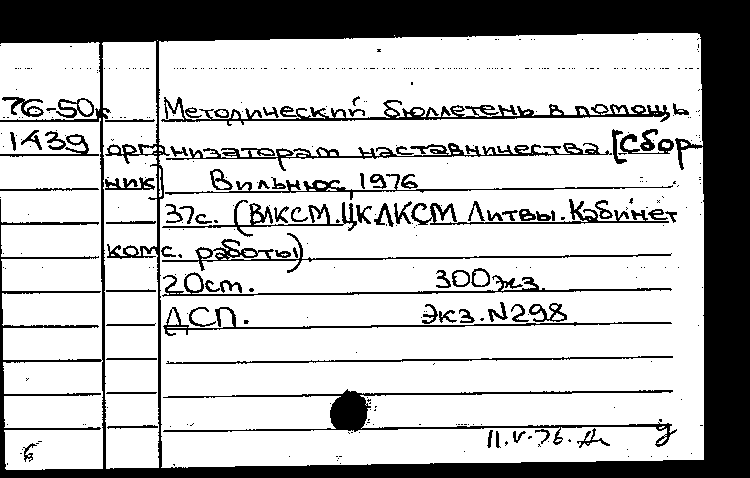 76-50к Методический бюллетень в помощь
1439 организаторам наставничества. [Сбор-
ник] Вильнюс, 1976
37с. (ВЛКСМ. ЦК ЛКСМ Литвы. Кабинет
комс. работы).
20см. 300экз.
ДСП. Экз. N298
11.V-76.
б